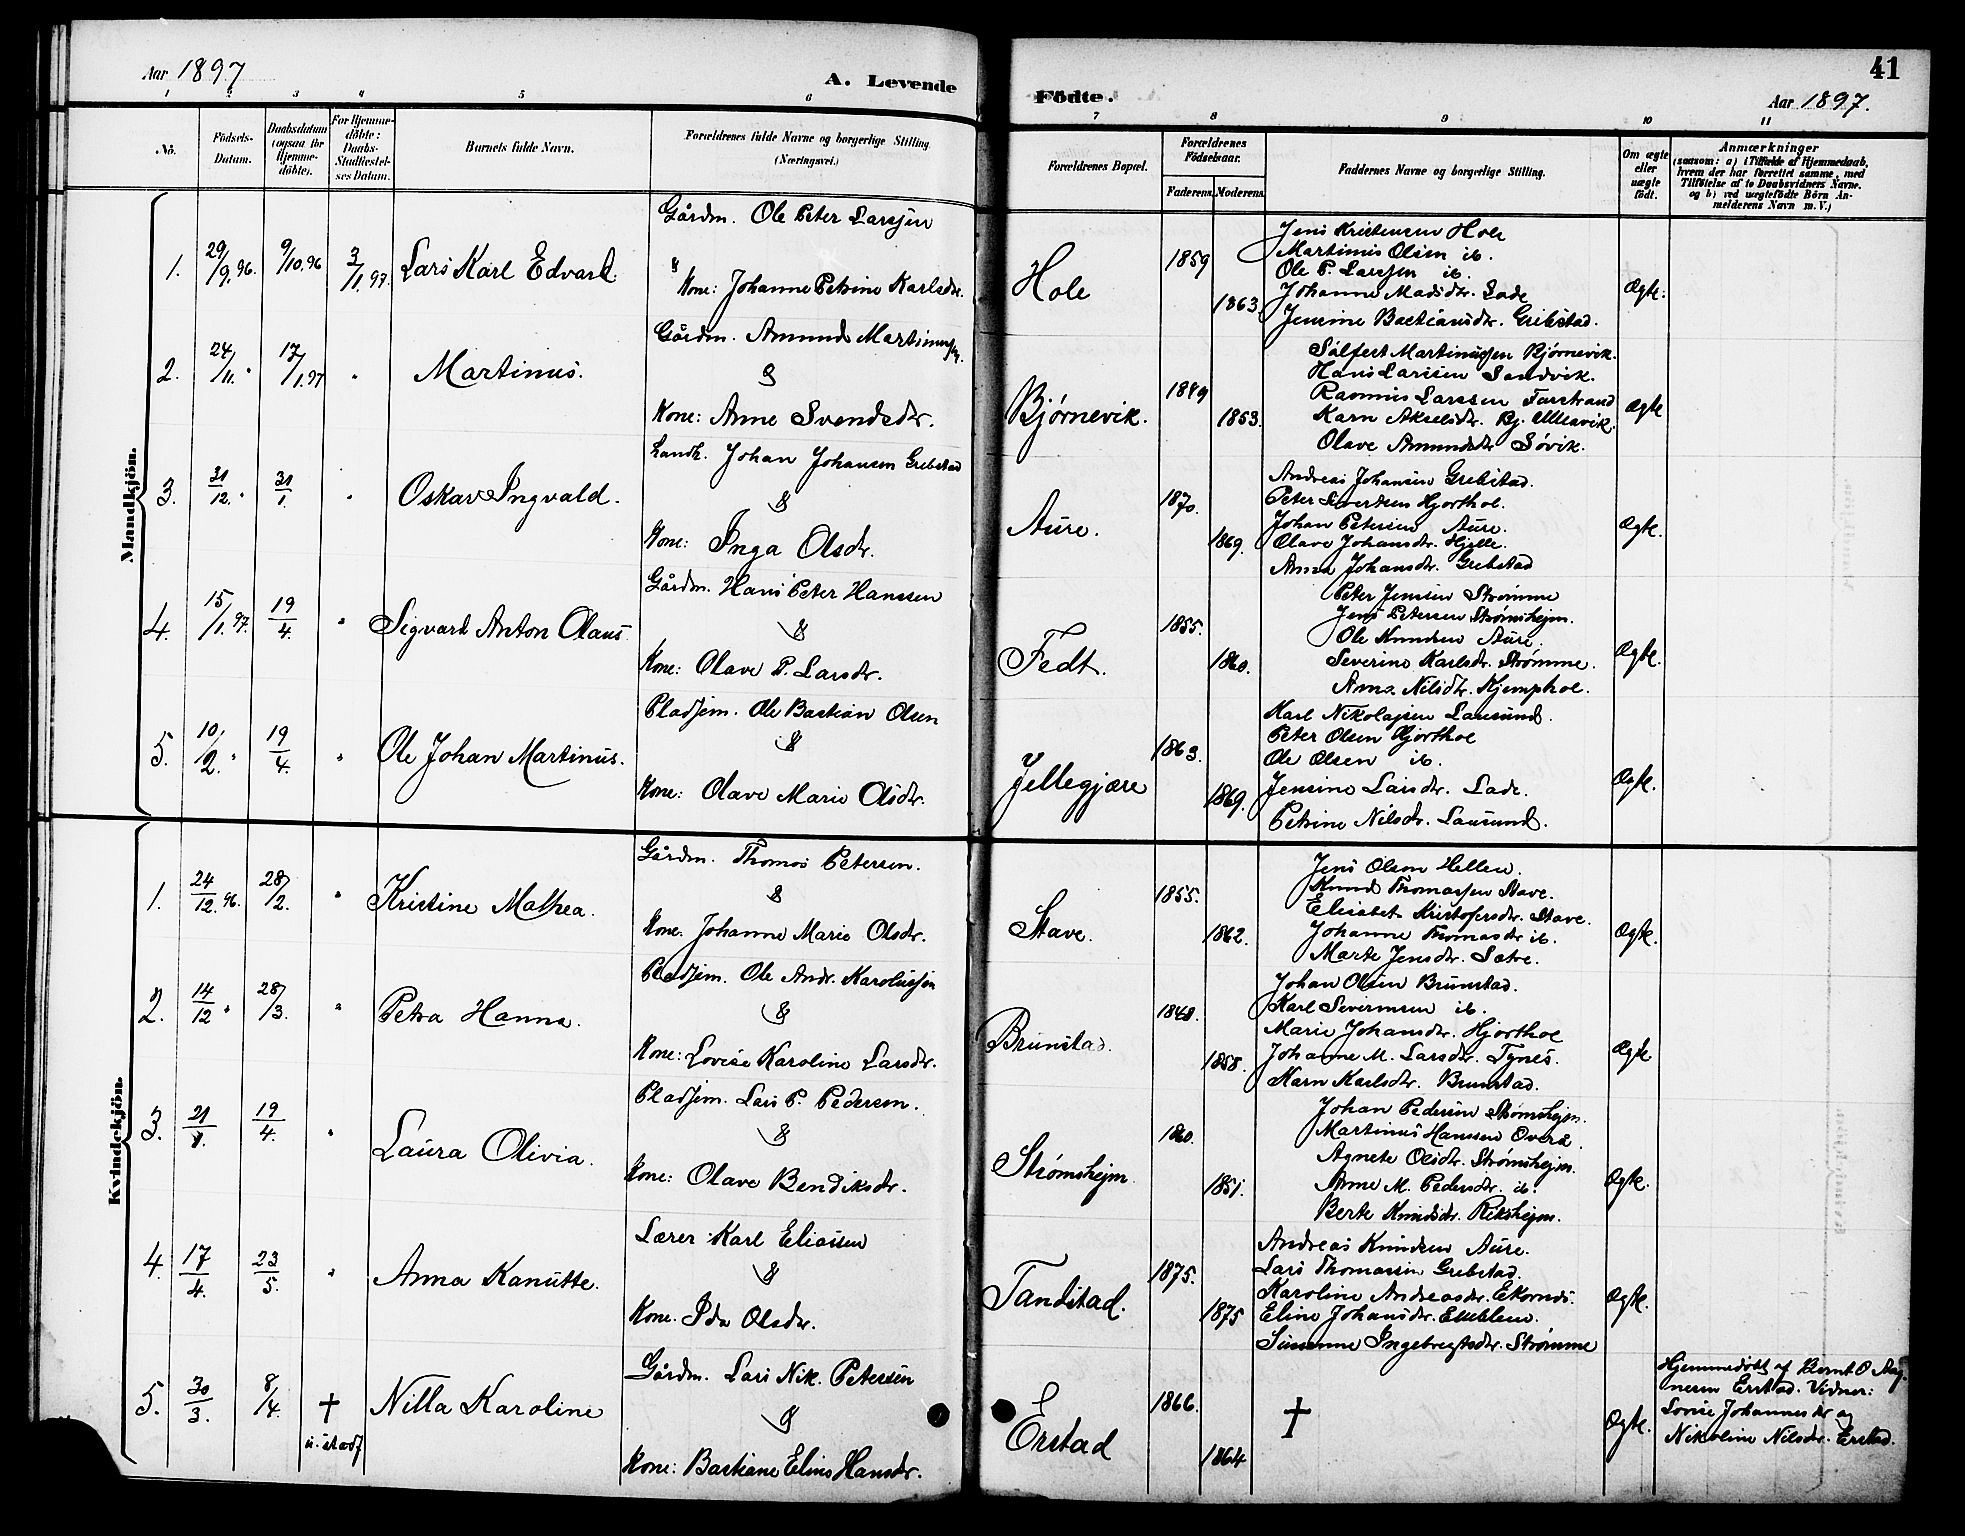 Aar 1897
A. Levende
Födte.
41
Aar 1897.
1 2 3 4 5 6 7 8 9 10 11
No.
Födsels-Datum.
Daabsdatum (ogsaa for Hjemme-döbte).
For Hjemme-döbte: Daabs-Stadfestel-ses Datum.
Barnets fulde Navn.
Forældrenes fulde Navne og borgerlige Stilling (Næringsvei.)
Forældrenes Bopæl.
Forældrenes Födselsaar.
Faderens. Moderens.
Faddernes Navne og borgerlige Stilling.
Om ægte eller uægte födt.
Anmærkninger
(saasom: a) i Tilfælde af Hjemmedaab, hvem der har forrettet samme, med Tilföielse af to Daabsvidners Navne. og b) ved uægtefödte Börn An-melderens Navn m. V.)
Mandkjön.
1. 29/9.96. 9/10.96 3/1.97. Lars Karl Edvard.
Gårdm. Ole Peter Larssen
&
Kone: Johanne Petrine Karlsdtr.
Hole
1859
1863
Jens Kristensen Hole
Martinus Olsen ib.
Ole P. Larssen ib.
Johanne Madsdtr. Lade
Jensine Bastiansdtr. Grebstad.
Ægte.
2. 24/11. " 17/1.97 " Martinus.
Gårdm. Amund Martinussen.
&
Kone: Anne Svendsdtr.
Bjørnevik.
1849
1853.
Sølfert Martinussen Bjørnevik.
Hans Larssen Sandvik.
Rasmus Larssen Farstrand
Karn Akselsdtr. Bj.
Olave Amundsdtr Søvik.
Ægte
3. 31/12. " 31/1. " Oskar Ingvald.
Landh. Johan Johansen Grebstad
&
Kone: Inga Olsdtr.
Aure.
1870.
1869.
Andreas Johansen Grebstad.
Peter Sivertsen Hjorthol.
Johan Petersen Aure.
Olave Johansdtr. Hjelle.
Anna Johansdtr. Grebstad
Ægte.
4. 15/1.97. 19/4. " Sigvard Anton Olaus.
Gårdm. Hans Peter Hanssen
&
Kone: Olave P. Larsdtr.
Fedt.
1855.
1860.
Peter Jensen Strømme
Jens Petersen Strømshejm.
Ole Knudsen Aure.
Severine Karlsdtr. Strømme.
Anna Nilsdtr. Kjemphol.
Ægte.
5. 10/2. " 19/4. " Ole Johan Martinus.
Pladsem. Ole Bastian Olsen
&
Kone: Olave Marie Olsdtr.
Jellegjære
1863.
1869.
Karl Nikolajsen Lausund.
Peter Olsen Hjorthol
Ole Olsen ib.
Jensine Larsdtr. Lade.
Petrine Nilsdtr. Lausund.
Ægte.
Kvindekjön.
1. 24/12.96. 28/2. " Kristine Mathea.
Gårdm. Thomas Petersen.
&
Kone. Johanne Marie Olsdtr.
Stave.
1855.
1862.
Jens Olsen Hellen.
Knud Thomassen Stave.
Elisabet Kristofersdtr. Stave.
Johanne Thomasdtr ib.
Marte Jensdtr. Sætre.
Ægte.
2. 14/12 " 28/3. " Petra Hanna.
Pladsem. Ole Andr. Karolussen
&
Kone: Lovise Karoline Larsdtr.
Brunstad.
1848.
1858.
Johan Olsen Brunstad.
Karl Severinsen ib.
Marie Johansdtr. Hjorthol
Johanne M. Larsdtr. Tynes.
Karn Karlsdtr. Brunstad.
Ægte
3. 21/1. 19/4. " Laura Olivia.
Pladsem. Lars P. Pedersen.
&
Kone: Olave Bendiksdtr.
Strømshejm.
1860.
1851.
Johan Pedersen Strømshejm.
Martinus Hanssen Overå.
Agnete Olsdtr. Strømshejm.
Anne M. Pedersdtr. ib.
Berte Knudsdtr. Rekshejm.
Ægte.
4. 17/4. 23/5. " Anna Kanutte.
Lærer: Karl Eliassen
&
Kone. Ida Olsdtr.
Tandstad.
1875.
1875
Andreas Knudsen Aure.
Lars Thomassen Grebstad.
Karoline Andreasdtr. Ekornæs.
Eline Johansdtr. Emblem.
Susanne Ingebregtsdtr. Strømme
Ægte.
5. 30/3. 8/4. † Nilla Karoline
Gårdm. Lars Nik. Petersen
&
Kone: Bastiane Elins Hansdtr.
Erstad
1866.
1864
†
Ægte.
Hjemmedöbt af Bernt O
Erstad. Vidner:
Lovise Johannesdtr og
Nikoline Nilsdtr. Erstad.